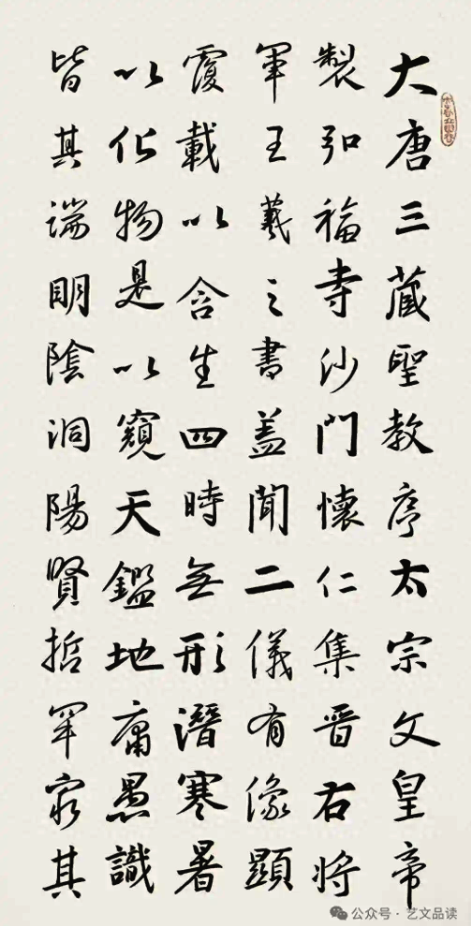 大唐三藏聖教序太宗文皇帝
製弘福寺沙門懷仁集晉右將
軍王羲之書盖聞二儀有像顯
覆載以含生四時無形潛寒暑
以化物是以窺天鑑地庸愚識
皆其端明陰洞陽賢哲罕窮其
公众号·艺文品读